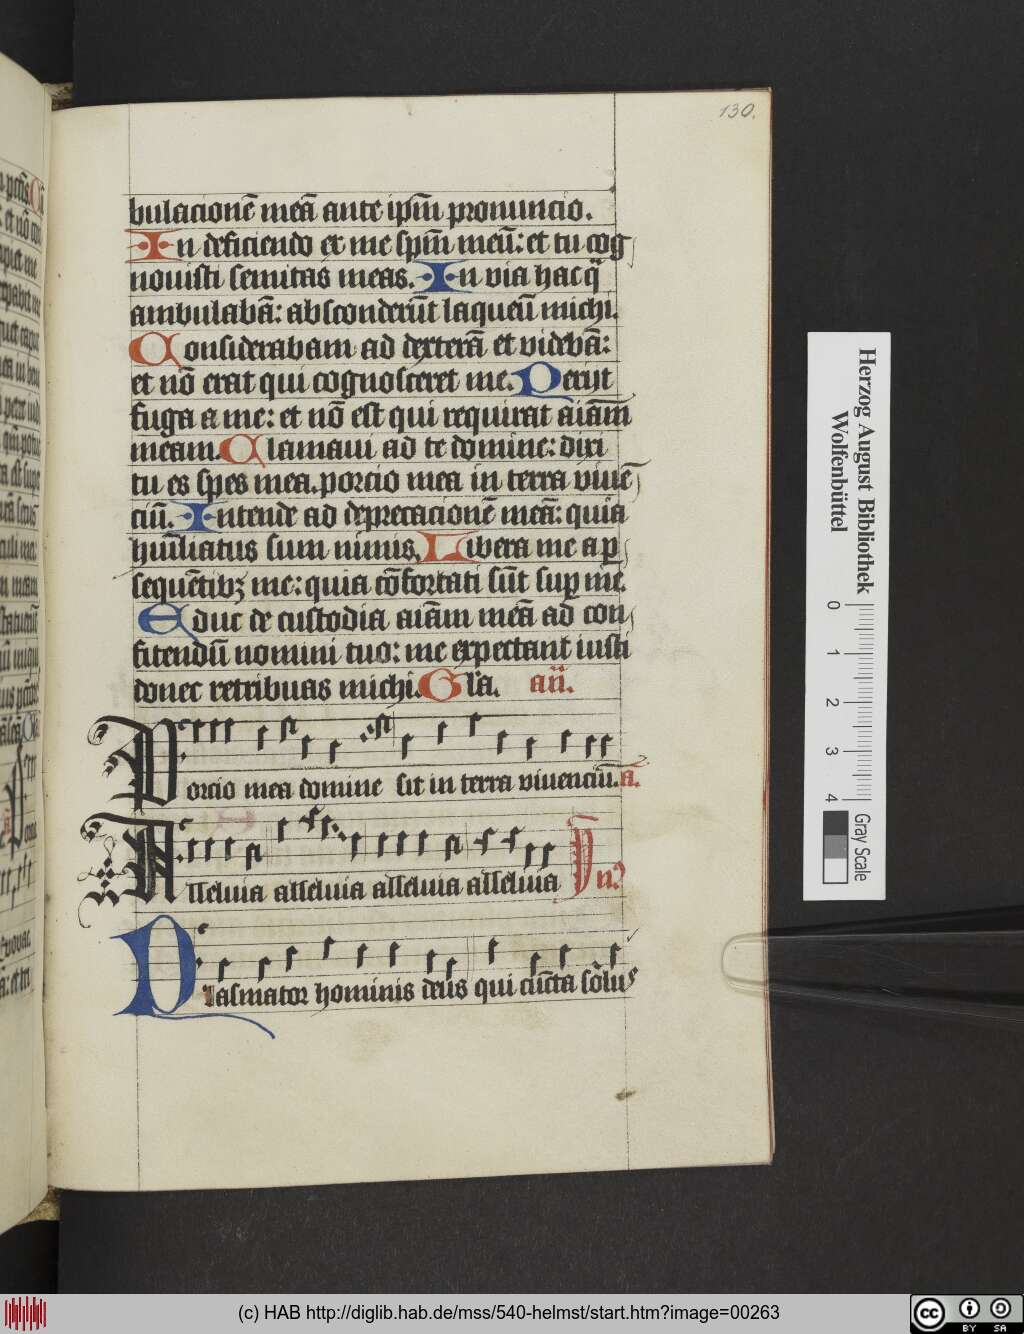 130.
bulacionē meā ante ipsm̄ pronuncio.
In deficiendo ex me spm̄ meū: et tu cog
nouisti semitas meas. In via hac q̄
ambulabā: absconderūt laqueū michi.
Considerabam ad dexterā et videbā:
et nō erat qui cognosceret me. Perijt
fuga a me: et nō est qui requirat aīam
meam. Clamaui ad te domine: dixi
tu es spes mea. porcio mea in terra viuē
ciū. Intende ad deprecacionē meā: quia
humiliatus sum nimis. Libera me a p
sequētibꝫ me: quia cōfortati sūt sup me.
Educ de custodia aīam meā ad con
fitendū nomini tuo: me expectant iusti
donec retribuas michi. Gl'a. añ.
Porcio mea domine sit in terra viuenciū. a.
Alleluia alleluia alleluia alleluia yn9
Plasmator hominis deus qui cūcta solus
Herzog August Bibliothek
Wolfenbüttel
0 1 2 3 4
Gray Scale
(c) HAB http://diglib.hab.de/mss/540-helmst/start.htm?image=00263
cc BY SA